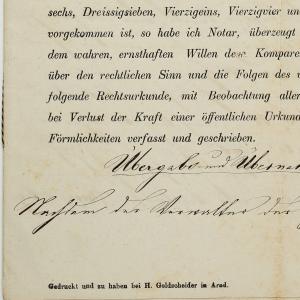 sechs, Dreissigsieben, Vierzigeins, Vierzigvier und
vorgekommen ist, so habe ich Notar, überzeugt
dem wahren, ernsthaften Willen des Kompare
über den rechtlichen Sinn und die Folgen des v
folgende Rechtsurkunde, mit Beobachtung aller
bei Verlust der Kraft einer öffentlichen Urkund
Förmlichkeiten verfasst und geschrieben.
Übergabs und Überna
Nachdem der Verwalter der
Gedruckt und zu haben bei H. Goldscheider in Arad.